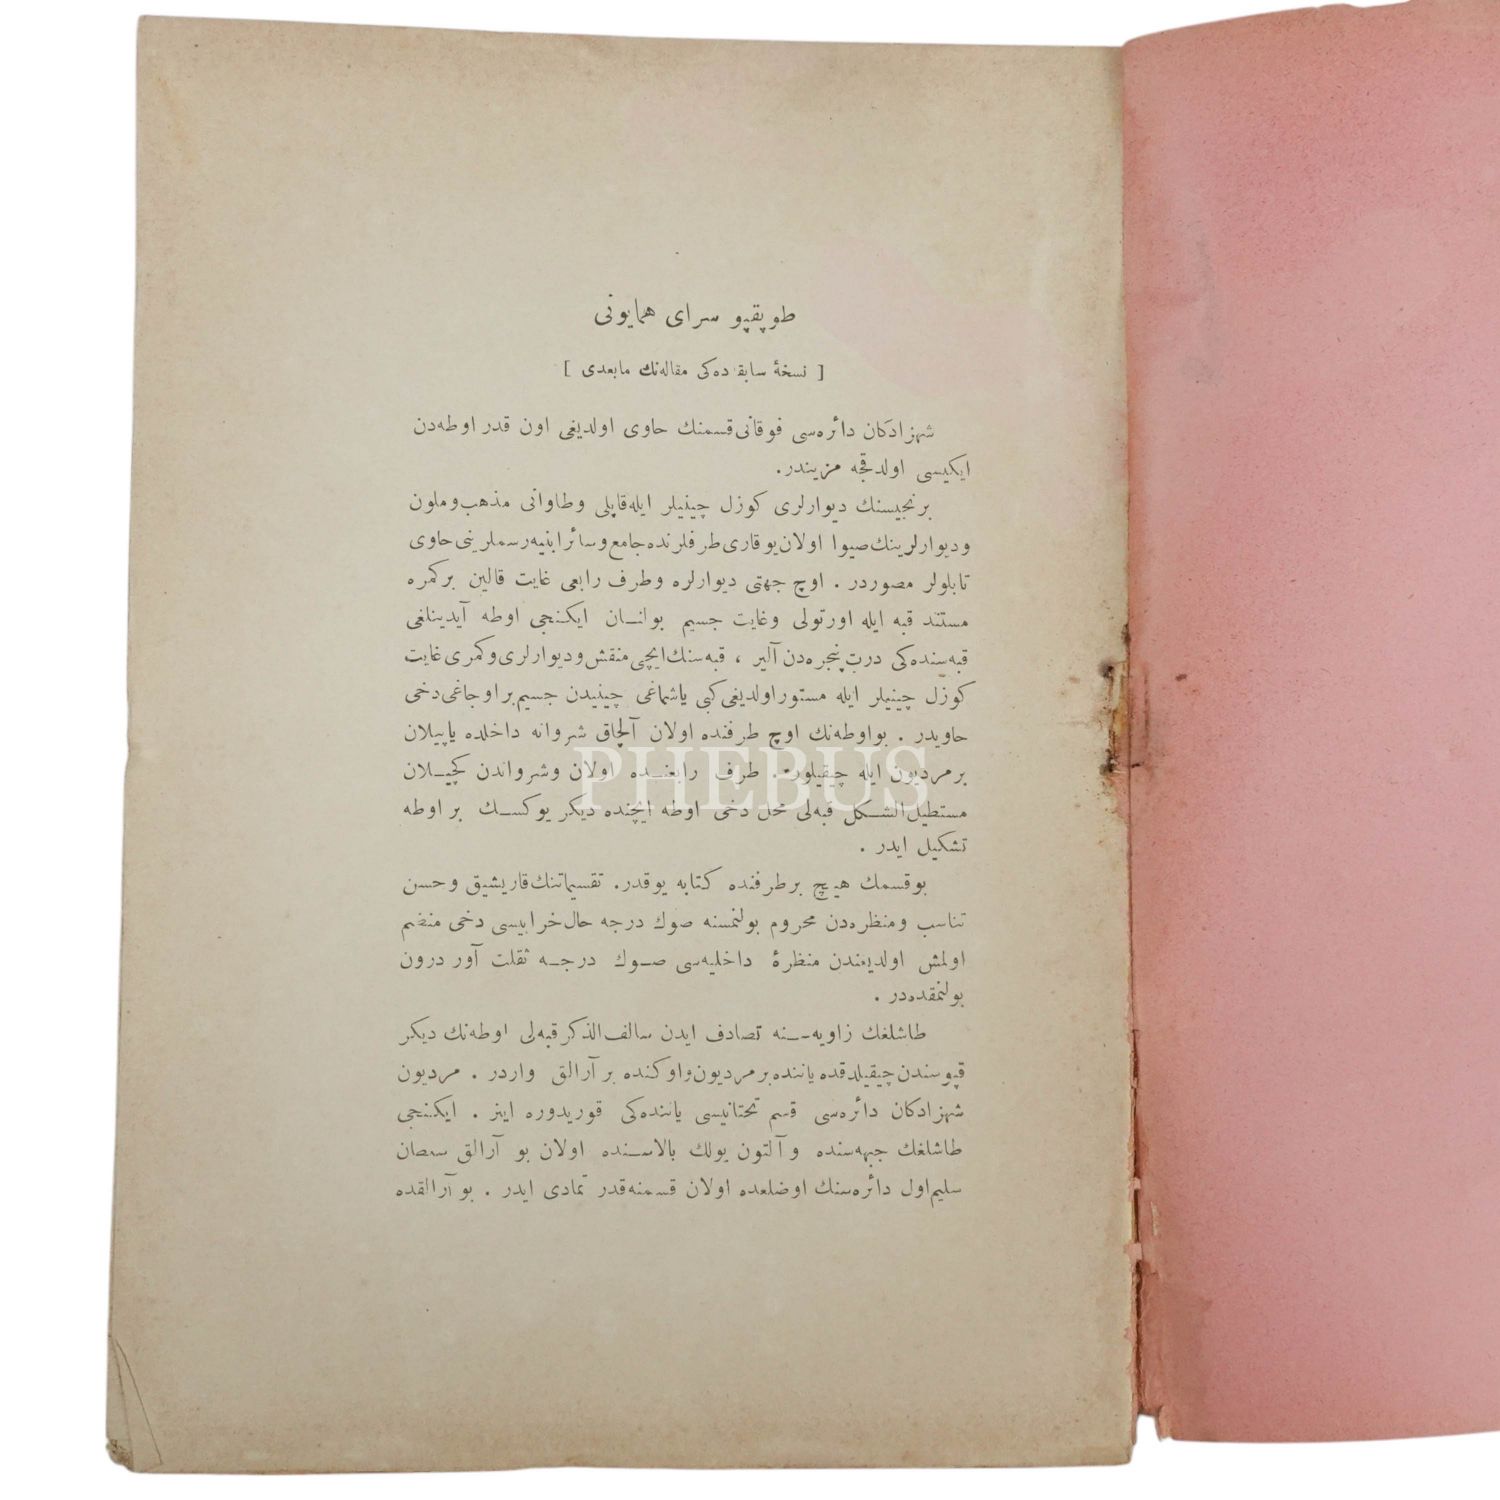 طوپقپو سرای همایونی
[ نسخهٔ سابقه‌ده‌کی مقاله‌نك مابعدی ]
شهزادکان دائره‌سی فوقانی قسمنك حاوی اولدیغی اون قدر اوطه‌دن
ایکیسی اولدقجه مزیندر.
برنجیسنك دیوارلری کوزل چینیلر ایله قاپلی وطاوانی مذهب وملون
ودیوارلرینك صیوا اولان یوقاری طرفلرنده جامع وسائر ابنیه رسملرینی حاوی
تابلولر مصوردر . اوچ جهتی دیوارلره وطرف رابعی غایت قالین برکمره
مستند قبه ایله اورتولی وغایت جسیم بولنان ایکنجی اوطه آیدینلغی
قبه‌سنده‌کی درت پنجره‌دن آلیر ، قبه‌سنك ایچی منقش ودیوارلری وکمری غایت
کوزل چینیلر ایله مستور اولدیغی کبی یاشماغی چینیدن جسیم بر اوجاغی دخی
حاویدر . بو اوطه‌نك اوچ طرفنده اولان آلچاق شروانه داخلده یاپیلان
برمردیون ایله چیقیلور . طرف رابعنده اولان وشرواندن کچیلان
مستطیل الشکل قبه‌لی محل دخی اوطه ایچنده دیکر یوکسك بر اوطه
تشکیل ایدر .
بوقسمك هیچ برطرفنده کتابه یوقدر. تقسیماتنك قاریشیق وحسن
تناسب ومنظره‌دن محروم بولنمسنه صوك درجه حال خرابیسی دخی منضم
اولمش اولدیغندن منظرهٔ داخلیه‌سی صوك درجه ثقلت آور درون
بولنمقده‌در .
طاشلغك زاویه‌سنه تصادف ایدن سالف الذکر قبه‌لی اوطه‌نك دیکر
قپوسندن چیقیلدقده یاننده برمردیون واوکنده بر آرالق واردر . مردیون
شهزادکان دائره‌سی قسم تحتانیسی یاننده‌کی قوریدوره اینر . ایکنجی
طاشلغك جبهه‌سنده و آلتون یولك بالاسنده اولان بو آرالق سلطان
سلیم اول دائره‌سنك اوضلعده اولان قسمنه قدر تمادی ایدر . بو آرالقده
PHEBUS